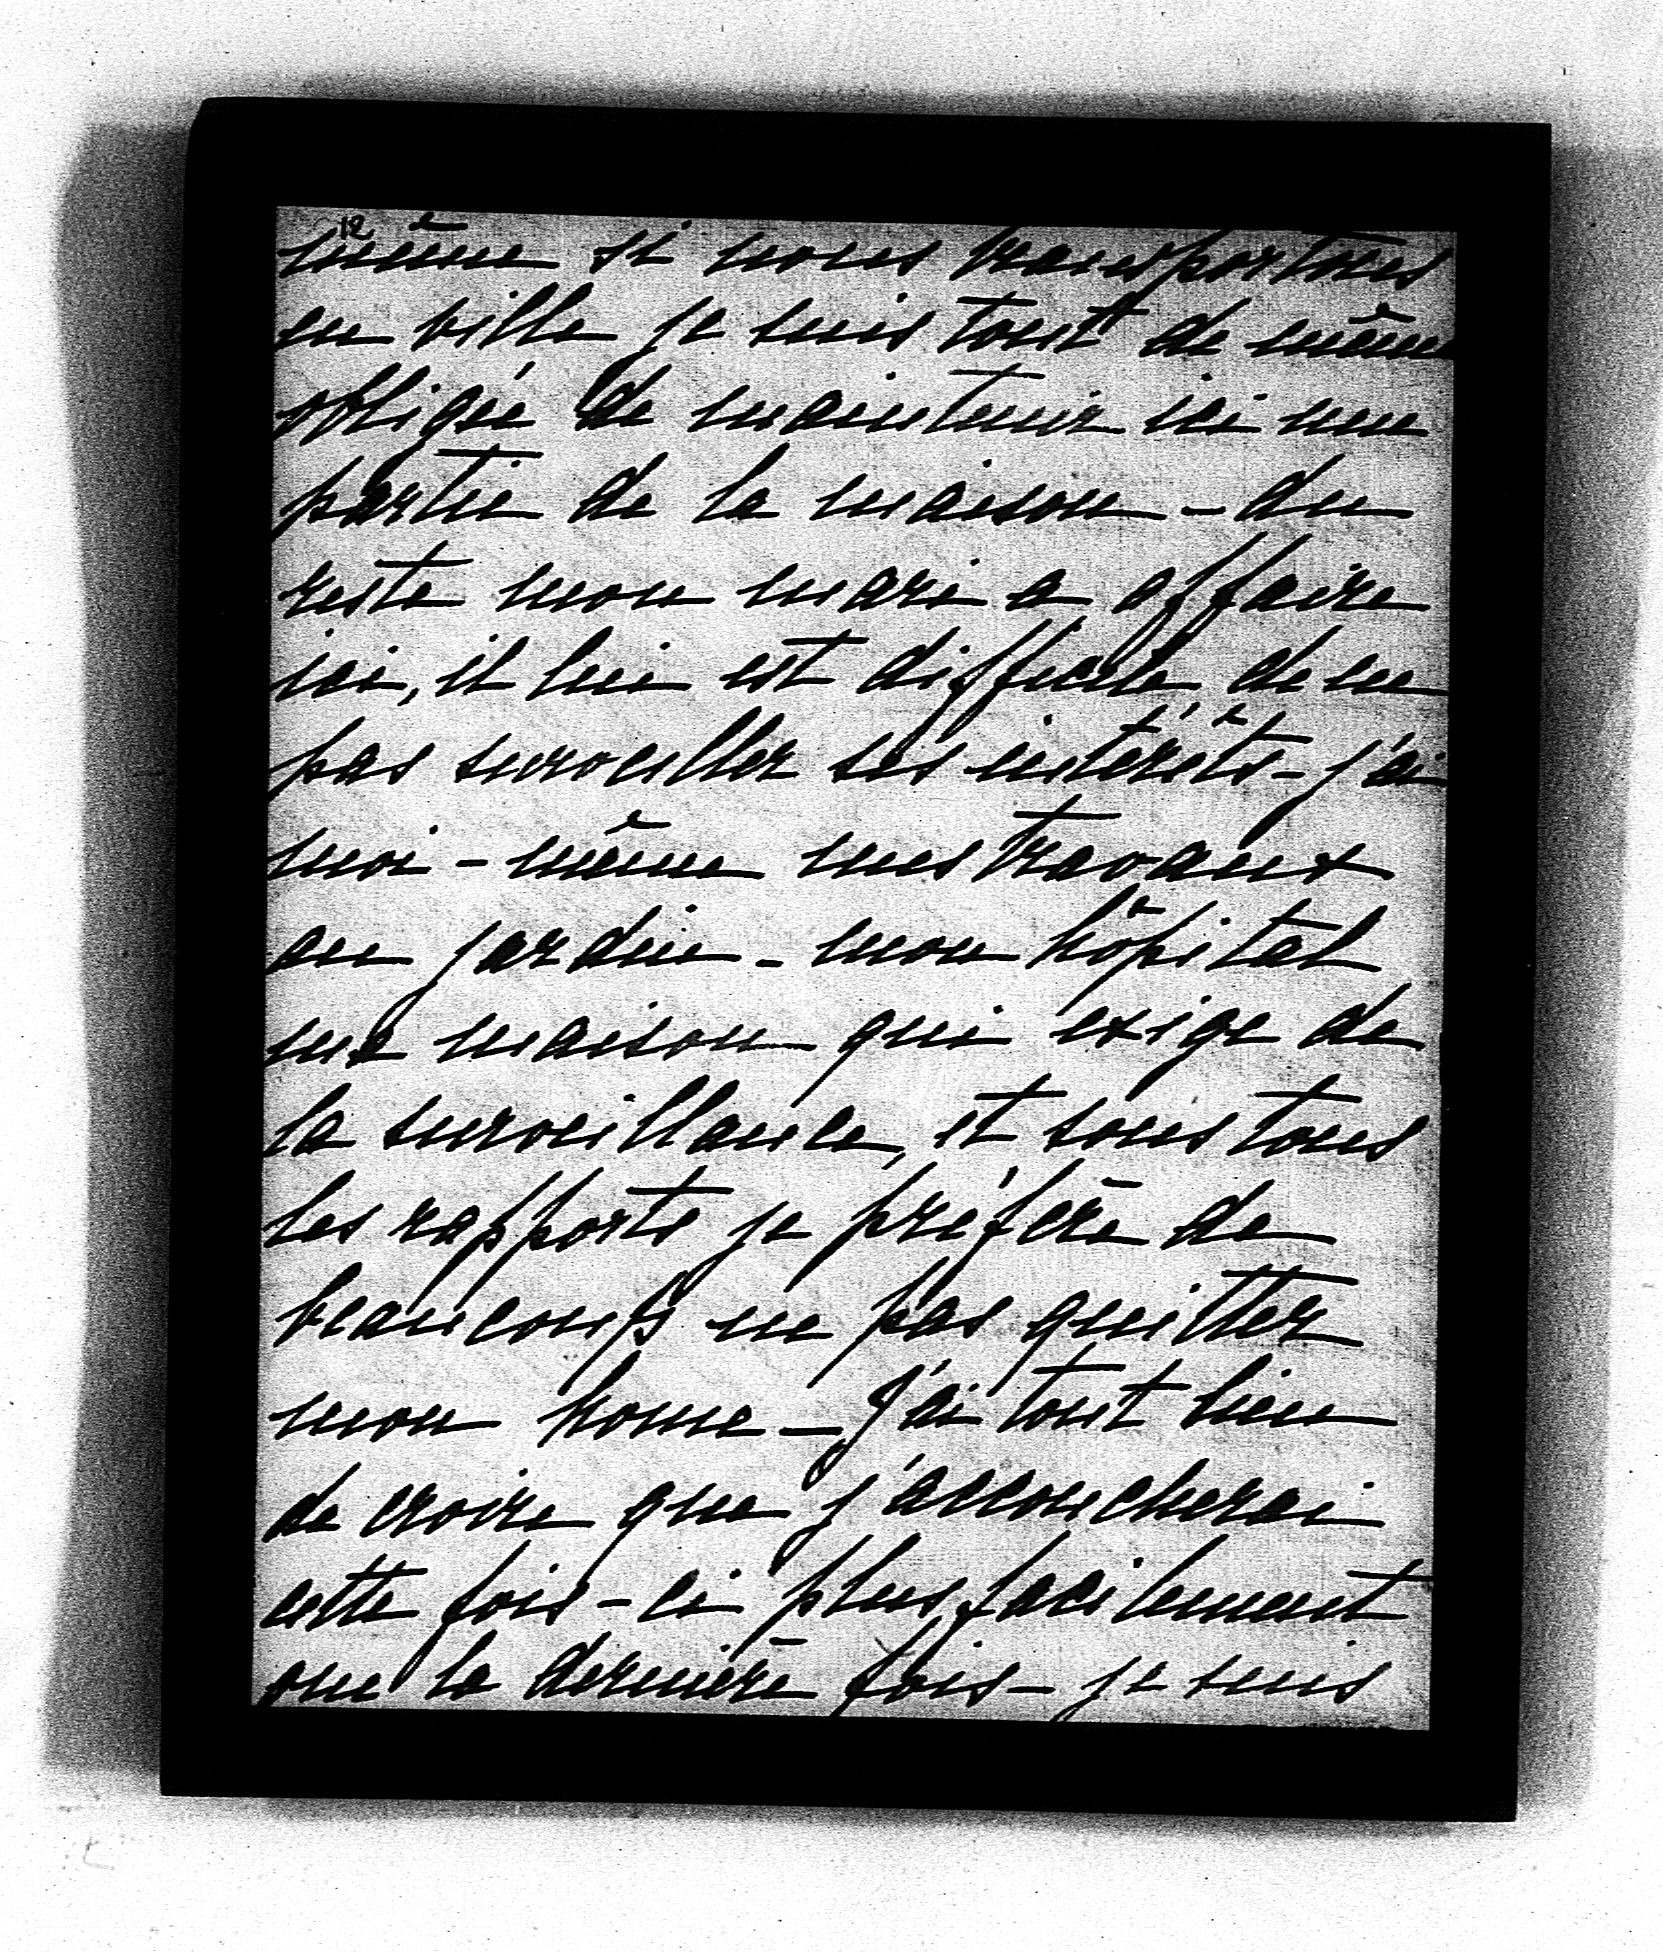 12
même si nous transportons
en ville je suis tout de même
obligée de maintenir ici une
partie de la maison - du
reste mon mari a affaire
ici, il lui est difficile de ne
pas surveiller ses intérêts - j'ai
moi-même mes travaux
au jardin - mon hôpital
ma maison qui exige de
la surveillance, et sous tous
les rapports je préfère de
beaucoup ne pas quitter
mon home - J'ai tout lieu
de croire que j'accoucherai
cette fois-ci plus facilement
que la dernière fois - je suis